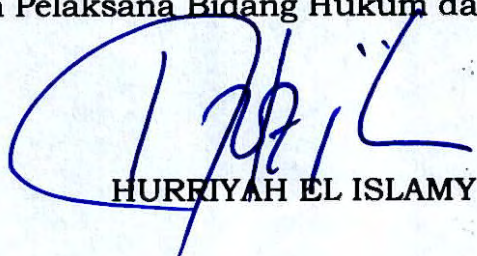 Pelaksana Bidang Hukum da
HURRIYAH EL ISLAMY